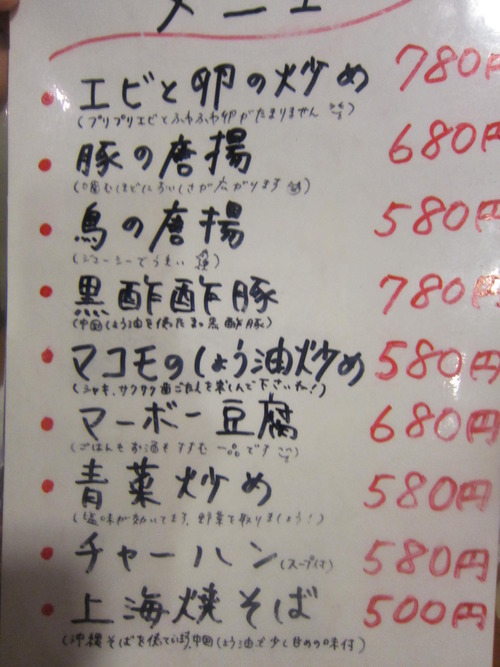 メニュー
・エビと卵の炒め 780円
(プリプリエビとふわふわ卵がたまりません)
・豚の唐揚 680円
(噛むほどにおいしさが広がります)
・鳥の唐揚 580円
(ジューシーでうまい)
・黒酢酢豚 780円
(中国しょう油を使った 黒酢豚)
・マコモのしょう油炒め 580円
(シャキ、サクサク歯ごたえを楽しんで下さいね!)
・マーボー豆腐 680円
(ごはんもお酒もすすむ一品です)
・青菜炒め 580円
(塩味が効いてます。野菜を取りましょう!)
・チャーハン(スープ付) 580円
・上海焼そば 500円
(沖縄そばを使っています。中国しょう油で少し甘めの味付)